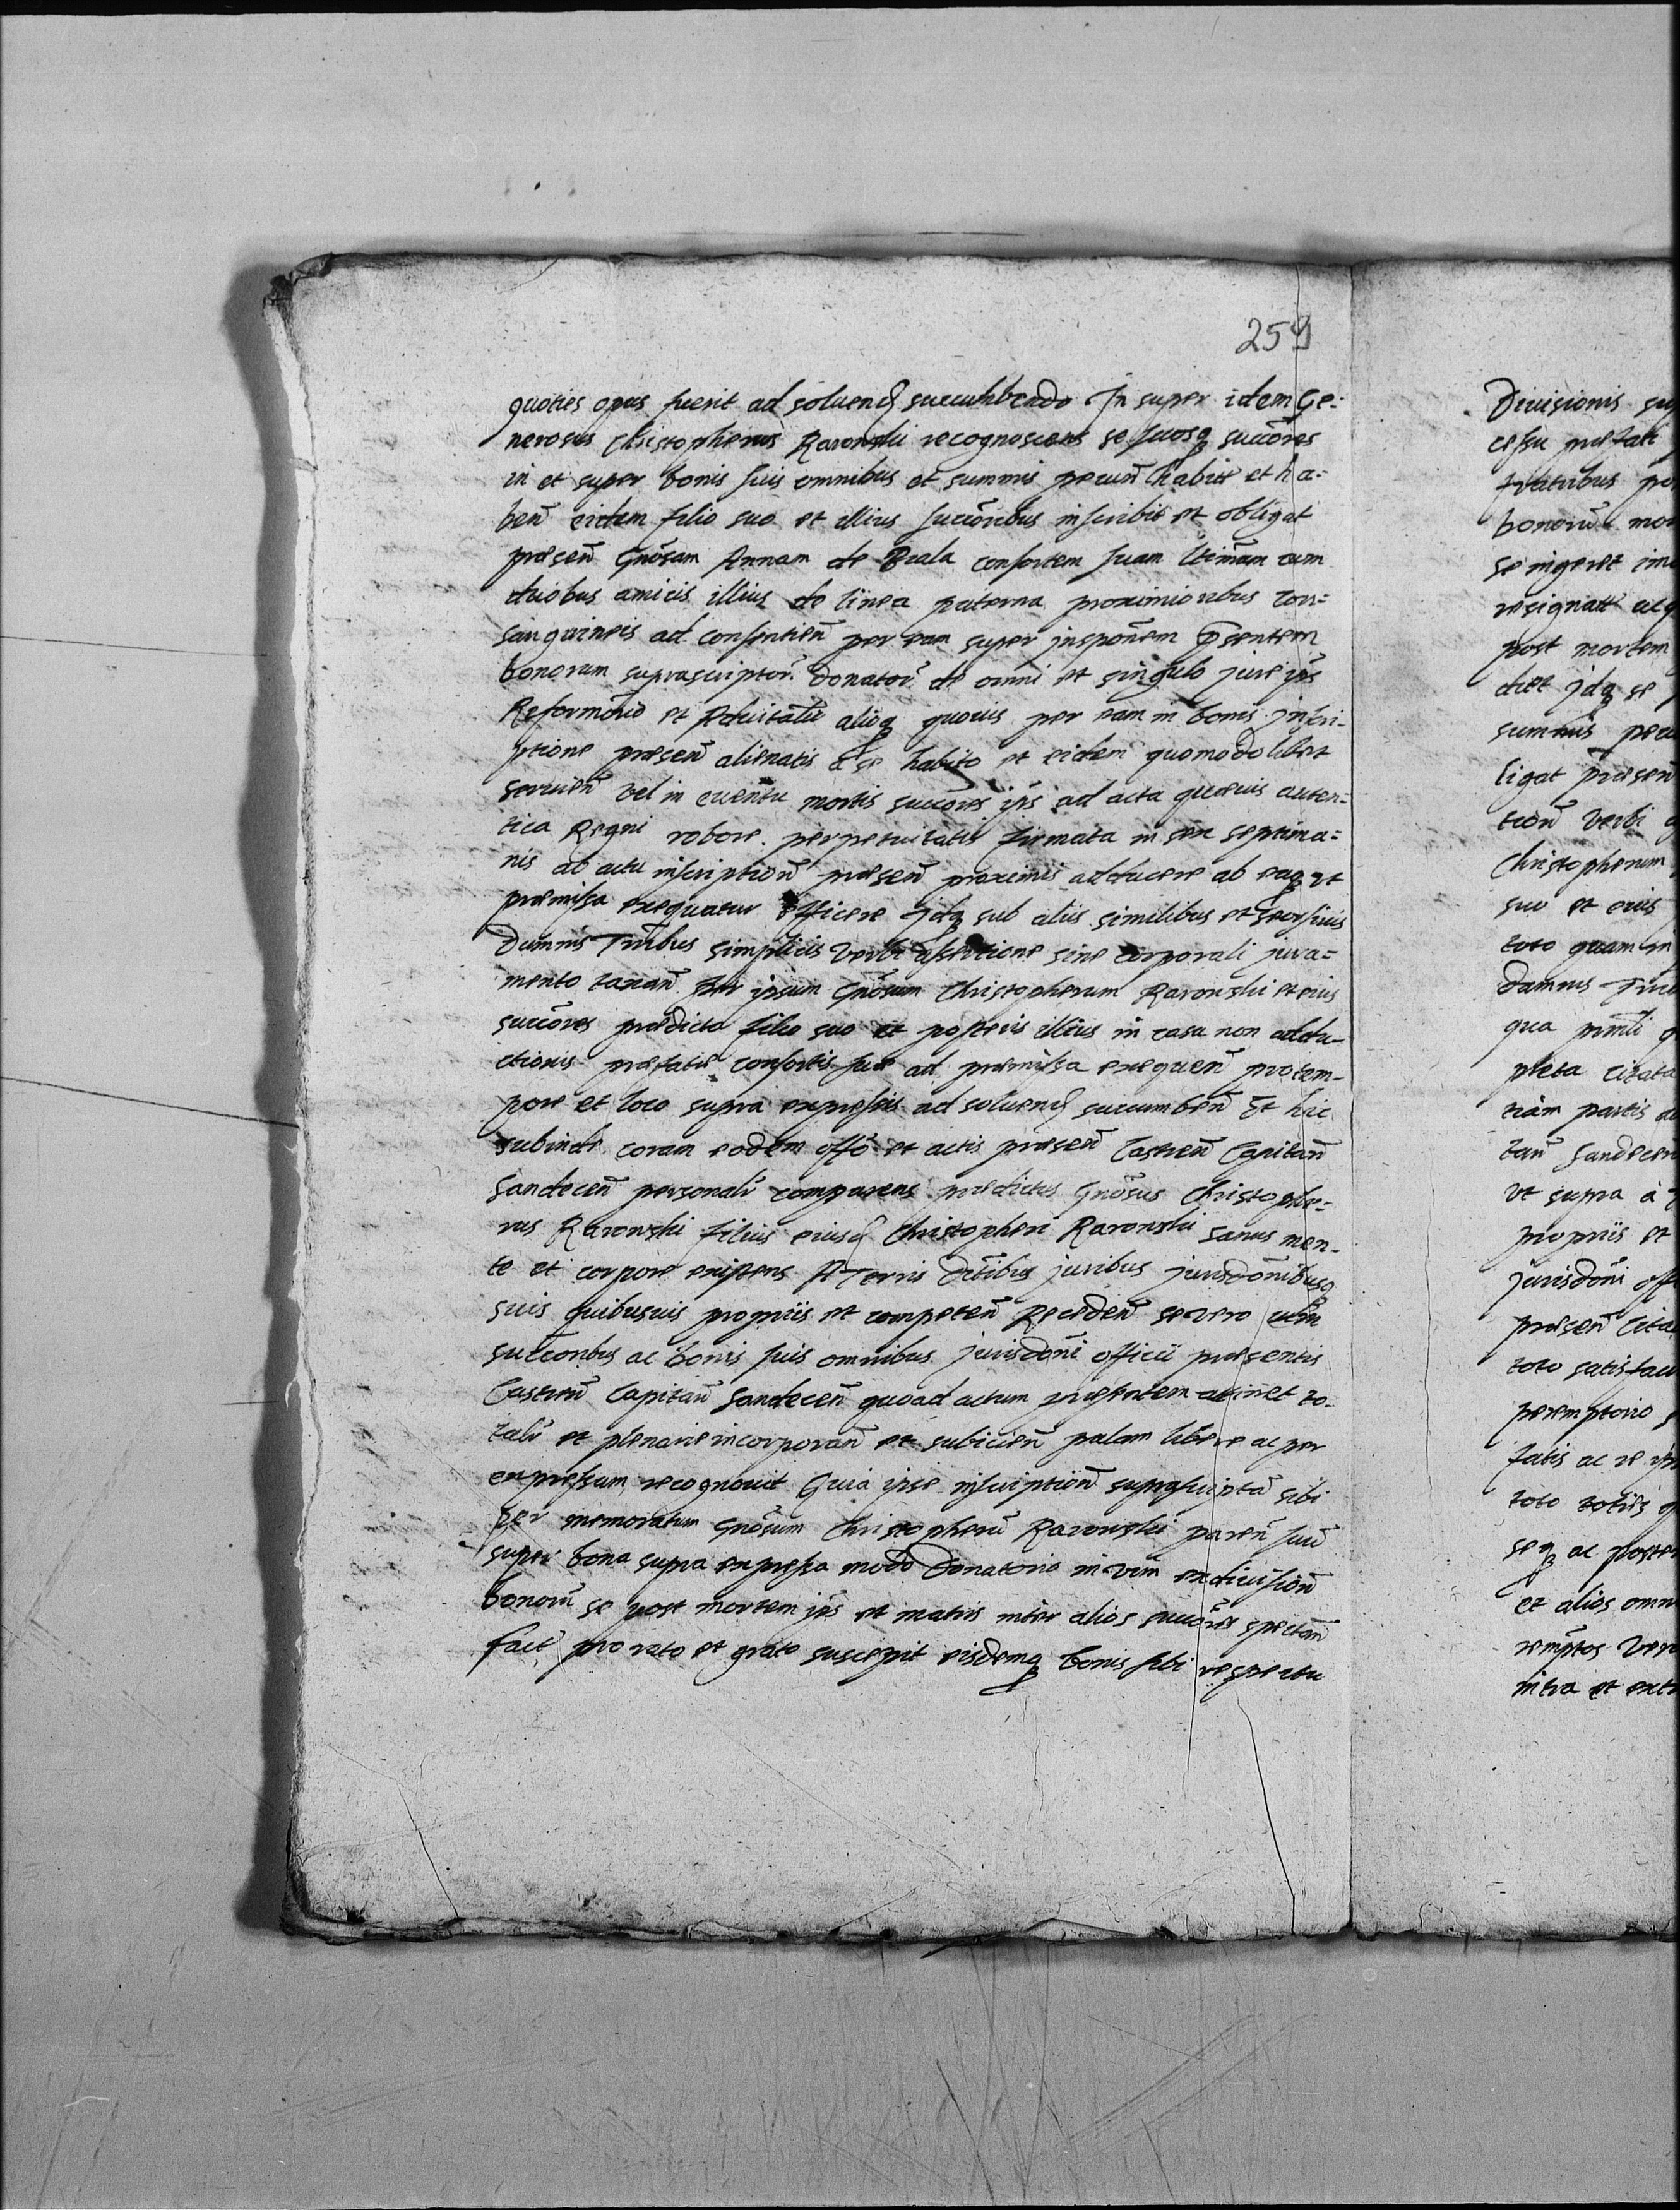 259
quoties opus fuerit ad soluend succumbendo In super idem Ge=
nerosus Christopherus Rarowski recognoscens se suosq succōres
in et super bonis suis omnibus et summis pecun̄ habit et ha=
ben̄ eidem filio suo et illius succōribus inscribit et obligat
præsen̄ Gnōsam Annam de Biala consortem suam ltimam cum
duobus amicis illius de linea paterna proximioribus con=
sanguineis ad consentien̄ per eam super inspōnem pn̄sentem
bonorum suprascriptor̄ donator̄ de omni et singulo jure ip̄s
Reformōrio et aduitalit̄ alioq quouis per eam in bonis inscri-
ptione præsen̄ alienatis a se habito et eidem quomodolibet
seruien̄ vel in euentu mortis succōres ip̄s ad acta quæuis auten=
tica Regni robore perpetuitatis firmata in sex septima=
nis ab actu inscription̄ præsen̄ proximis adducere ab eaq vt
præmissa exequatur efficere Idq sub aliis similibus et seorsiuis
damnis Trribus simplicis verbi assertione sine corporali jura=
mento taxan̄ Per ipsum Gnōsum Christopherum Rarowski et eius
succōres prædicto filio suo et posteris illius in casu non addu-
ctionis præfatæ consortis suæ ad præmissa exequen̄ pro tem-
pore et loco supra expressis ad soluend succumben̄ Et hic
subinde coram eodem offō et actis præsen̄ Castren̄ Capitan̄
Sandecen̄ personalr̄ comparens prædictus Gnōsus Christophe=
rus Rarowski filius eiusd Christopheri Rarowski sanus men-
te et corpore existens A Terris ditibus juribus jurisdōnibusq
suis quibusuis propriis et competen̄ Receden̄ se vero cum
succōribus ac bonis suis omnibus jurisdōni officii præsentis
Castren̄ Capitan̄ Sandecen̄ quoad actum præsentem attinet to-
talr̄ et plenarie incorporan̄ et subiicien̄ palam libere ac per
expressum recognouit Quia ipse inscription̄ suprascriptā sibi
per memoratum Gnōsum Christopherū Rarowski paren̄ suū
super bona supra expressa modo donatorio in vim exdiuision̄
bonorū se post mortem ip̄s et matris inter alios succōres spectan̄
fact pro rato et grato suscepit eisdemq bonis sibi respectu
Diuisionis
cessu præfati
fratribus
bonorū
se ingeret
resignatt
post mortem
diet idq se
summis
ligat præsen̄
tion̄ verbi
Christopherum
suo et eius
toto quam in
damnis
qua
pleta citata
tiam partis
tan̄ Sandecen
vt supra à
propriis et
jurisdōni off
præsen̄ cita
toto satisfac
peremptorio
fatis ac
toto toties
seq ac poster
et alios omn
remptos vero
intra et extr